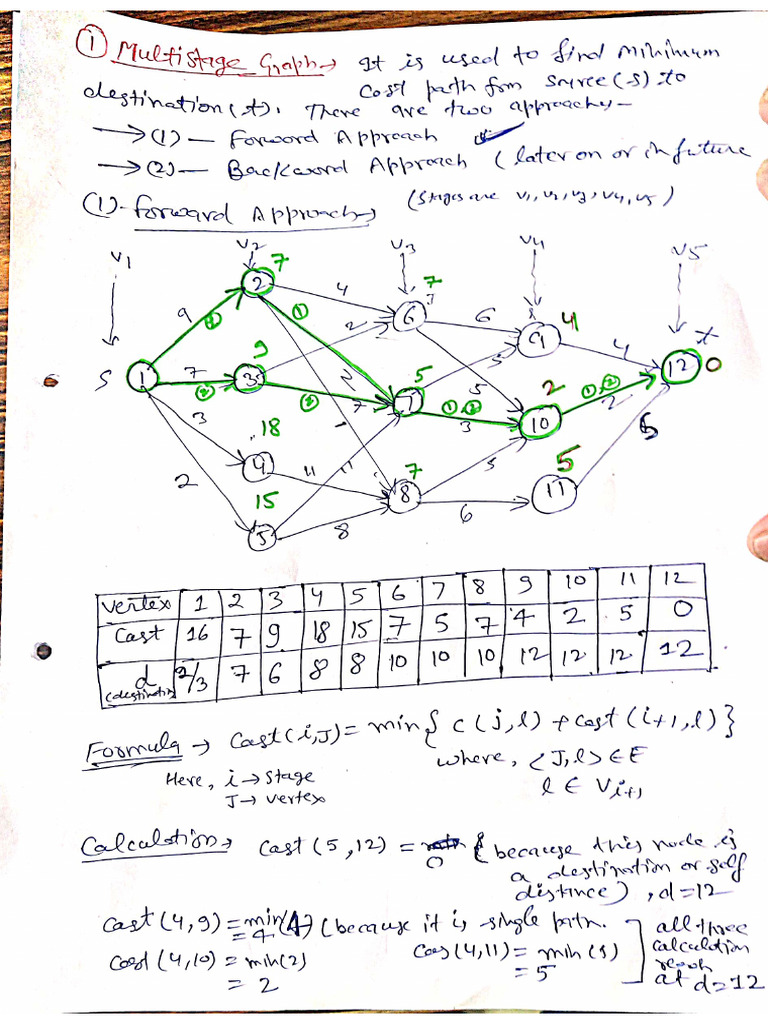 ① Multistage Graph → It is used to find minimum
cost path from source(s) to
destination(t). There are two approaches—
→ (1) — Forword Approach
→ (2) — Backword Approach (later on or in future
(1)- Forword Approach → (stages are v1, v2, v3, v4, v5)
v1 v2 v3 v4 v5
7 7
2 4 6 6 9 4 4 t
9 ① 2
② 5 12 0
S 1 7 3 9 2 5 5 2 ①,②
② ② 7 7 ①,② 3 10 2
3 18 1 6
2 4 11 11 7 5 5
15 8 11
5 8 6
vertex 1 2 3 4 5 6 7 8 9 10 11 12
Cast 16 7 9 18 15 7 5 7 4 2 5 0
d 2/3 7 6 8 8 10 10 10 12 12 12 12
(destination)
Formula → Cast(i,J) = min{ c(j,l) + cost(i+1,l)}
Here, i → stage where, <J,l> ∈ E
J → vertex l ∈ Vi+1
Calculation → cast (5,12) = 0 { because this node is
a destination or self
distince) , d=12
cast (4,9) = min(4) (because it is single path.
= 4
cost (4,10) = min(2) Cos(4,11) = min(5)
= 2 = 5
all three
calculation
at d=12